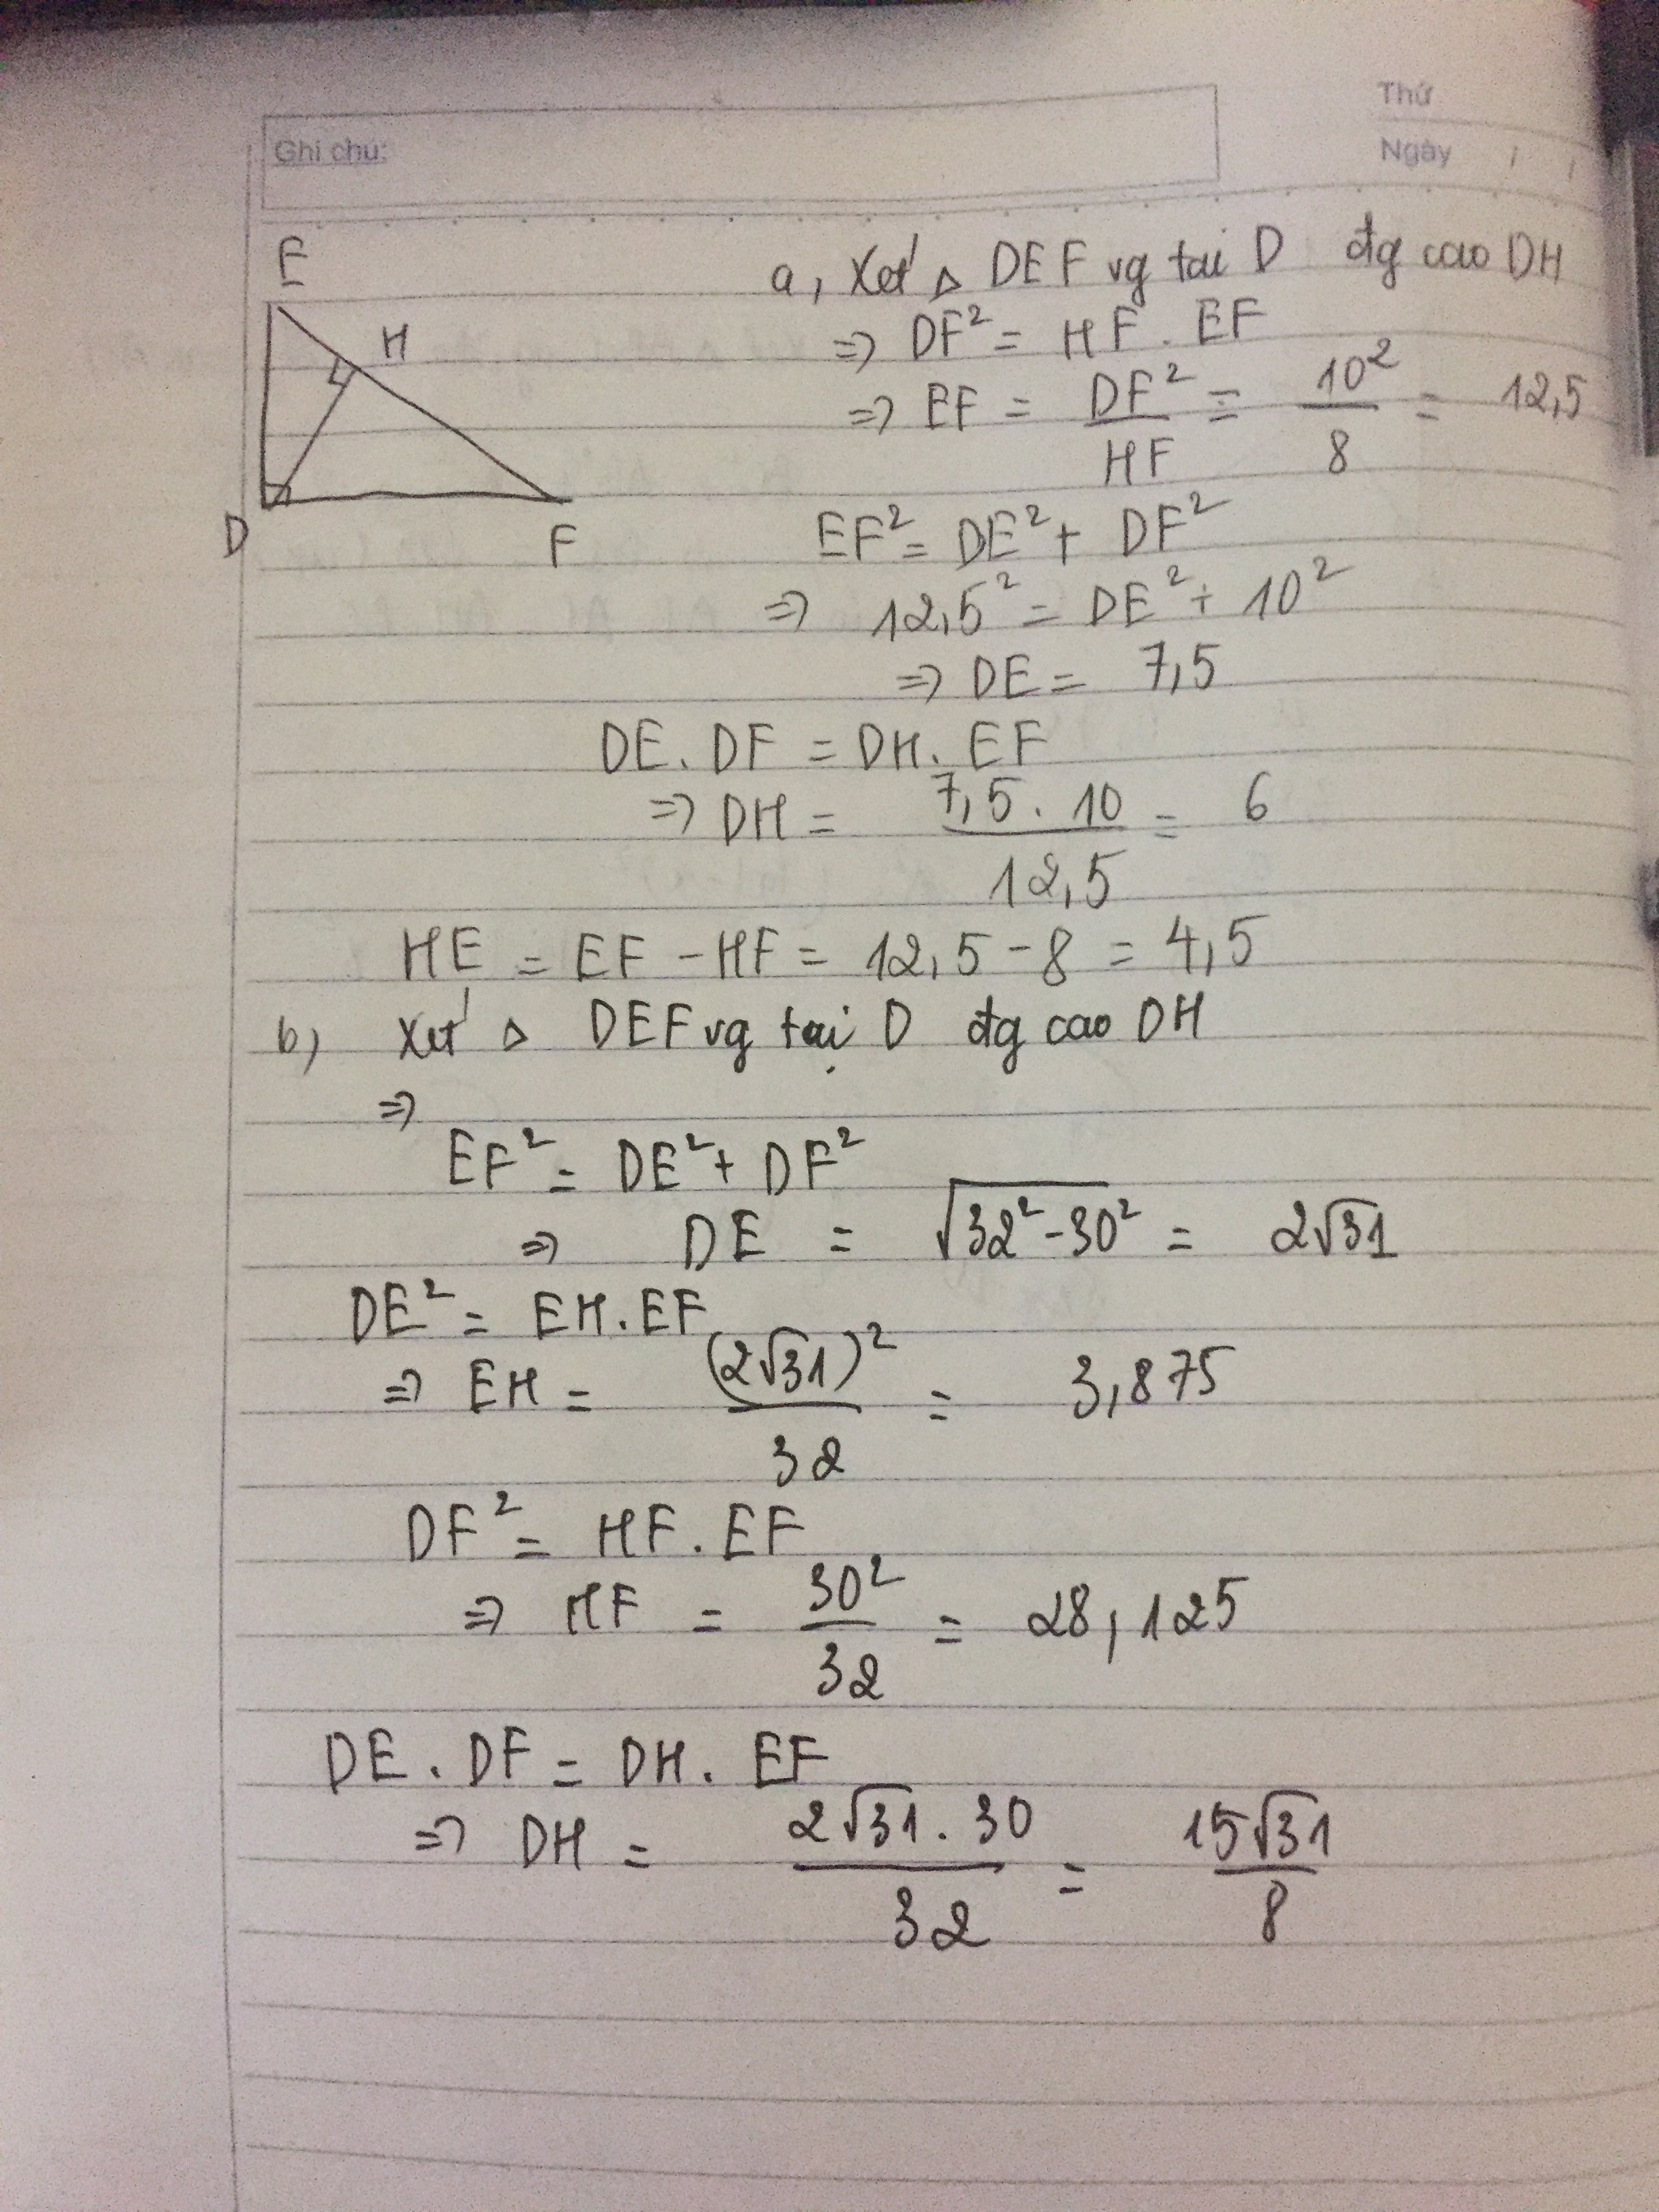 Thứ
Ghi chú:
Ngày / /
E
H
D
F
a, Xét △ DEF vg tại D đg cao DH
=> DF² = HF . EF
=> EF = DF²/HF = 10²/8 = 12,5
EF² = DE² + DF²
=> 12,5² = DE² + 10²
=> DE = 7,5
DE . DF = DH . EF
=> DH = 7,5 . 10/12,5 = 6
HE = EF - HF = 12,5 - 8 = 4,5
b, Xét △ DEF vg tại D đg cao DH
=>
EF² = DE² + DF²
=> DE = √(32² - 30²) = 2√31
DE² = EH . EF
=> EH = (2√31)²/32 = 3,875
DF² = HF . EF
=> HF = 30²/32 = 28,125
DE . DF = DH . EF
=> DH = 2√31 . 30/32 = 15√31/8